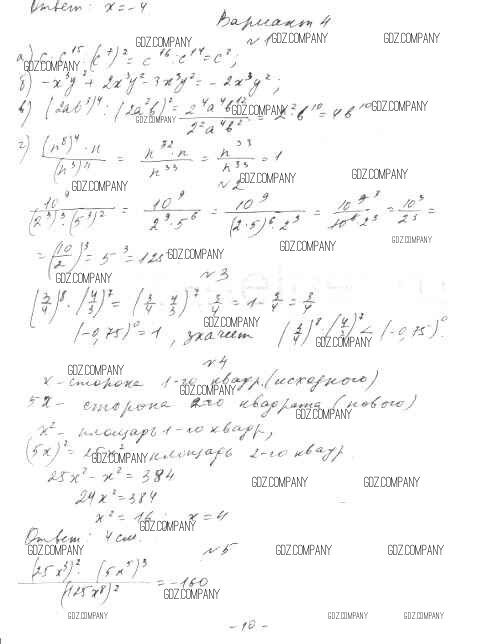 Ответ: x = -4
Вариант 4
№1
а) c · c¹⁵ : (c⁷)² = c¹⁶ : c¹⁴ = c²;
б) -x³y² + 2x³y² - 3x³y² = -2x³y²;
в) (2ab³)⁴ : (2a²b)² = 2⁴a⁴b¹² / 2²a⁴b² = 2²b¹⁰ = 4b¹⁰
г) (n⁸)⁴ · n / (n³)¹¹ = n³² · n / n³³ = n³³ / n³³ = 1
№2
10⁹ / (2³)³ · (5³)² = 10⁹ / 2⁹ · 5⁶ = 10⁹ / (2·5)⁶ · 2³ = 10⁹ ³ / 10⁶ · 2³ = 10³ / 2³ =
= (10/2)³ = 5³ = 125
№3
(3/4)⁸ · (4/3)⁷ = (3/4 · 4/3)⁷ · 3/4 = 1 · 3/4 = 3/4
(-0,75)⁰ = 1, значит (3/4)⁸ · (4/3)⁷ < (-0,75)⁰.
№4
x - сторона 1-го квадр. (исходного)
5x - сторона 2-го квадрата (нового)
x² - площадь 1-го квадр,
(5x)² = 25x² площадь 2-го квадр.
25x² - x² = 384
24x² = 384
x² = 16 x = 4
Ответ: 4 см.
№5
(25x³)² · (5x⁵)³ / (125x⁸)² = -160
- 10 -
GDZ.COMPANY